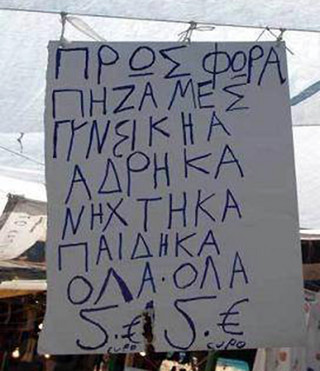 ΠΡΩΣ ΦΩΡΑ
ΠΗΖΑΜΕΣ
ΓΥΝΕΙΚΗΑ
ΑΔΡΗΚΑ
ΝΗΧΤΗΚΑ
ΠΑΙΔΗΚΑ
ΟΛΑ·ΟΛΑ
5.€ 5.€
euro euro